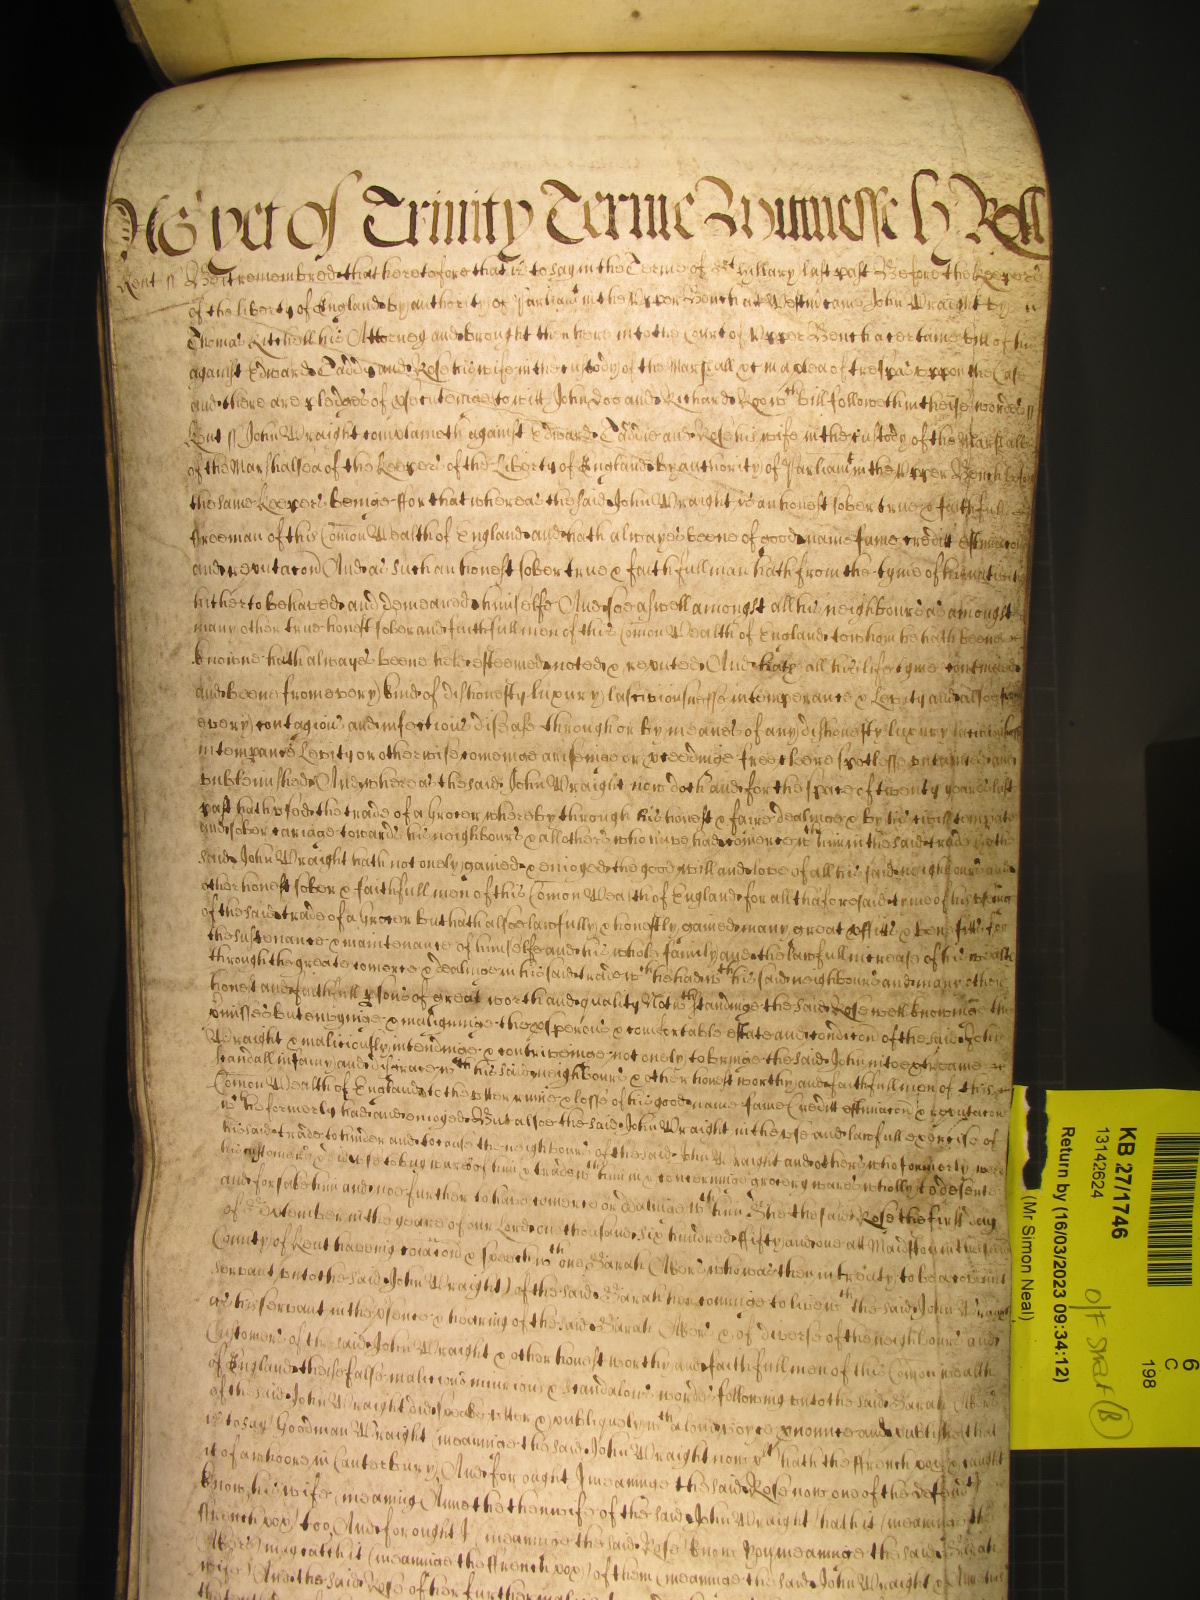 As yet of Trinity Terme Wittnesseth Roll
Kent ss Be it remembred that heretofore that is to say in the Terme of St hillary last past Before the keepers
of the liberty of England by authority of Parliamt in the Upper Bench at Westmr came John Wraight by
Thomas Kitchell his Attorney and brought then here into the Court of Upper Bench a certaine bill of his
against Edward Caddy and Rose his wife in the custody of the Marshall &c in a plea of trespas uppon the Case
and there are pledges of prosecuteinge to witt John Doo and Richard Roo wch bill followeth in theise words ss
Kent ss John Wraight complaineth against Edward Caddie and Rose his wife in the custody of the Marshall
of the Marshalsea of the keepers of the Liberty of England by authority of Parliamt in the Upper Bench before
the same keepers beinge ffor that whereas the said John Wraight is an honest sober true & faithfull
ffreeman of this Comon Wealth of England and hath alwayes beene of good name fame creditt estimacon
and reputacon And as such an honest sober true & faithfull man hath from the tyme of his nativity
hitherto behaved and demeaned himselfe And soe aswell amongst all his neighbours as amongst
many other true honest sober and faithfull men of this Comon Wealth of England to whom he hath beene
knowne hath alwayes beene held esteemed noted & reputed And hath all his life tyme continued
and beene from every kind of dishonesty luxury lasciviousnesse intemperance & Levity and alsoe from
every contagious and infectious disease through or by meanes of any dishonesty luxury lasciviousnes
intemperance Levity or otherwise comeinge ariseinge or proceedinge free cleere spotlesse untainted and
unblemished And whereas the said John Wraight now doth and for the space of twenty yeares last
past hath used the trade of a Grocer whereby through his honest & faire dealinge & by his civill temperate
and sober cariage towards his neighbours & all others who have had comerce wth him in the said trade he the
said John Wraight hath not onely gained & enioyed the good will and love of all his said neighbours and
other honest sober & faithfull men of this Comon Wealth of England for all thaforesaid tyme of his useing
of the said trade of a Grocer but hath alsoe lawfully & honestly gained many great proffitts & benefitts for
the sustenance & maintenance of himselfe and his whole family and the lawfull increase of his wealth
through the greate comerce & dealinge in his said trade wch he had wth his said neighbours and many other
honest and faithfull psons of great worth and quality Notwthstandinge the said Rose well knowinge the
premisses but envyinge & maligninge the prosperous & comfortable estate and condicon of the said John
Wraight & maliciously intendinge & contriveinge not onely to bringe the said John into extreame
scandall infamy and disgrace wth his said neighbours & other honest worthy and faithfull men of this
Comon Wealth of England & to the utter ruine & losse of his good name fame Creditt estimacon & reputacon
wch he formerly had and enioyed But alsoe the said John Wraight in the use and lawfull exercise of
his said trade to hinder and to cause the neighbours of the said John Wraight and others who formerly were
his customers & did use to buy wares of him & trade wth him in & concerninge grocery wares wholly to desert
and forsake him and noe further to have comerce or dealinge wth him Shee the said Rose the first day
of September in the yeare of our Lord one thousand six hundred ffifty and one att Maidston in the said
County of Kent haveing colacon & speech wth one Sarah Allen who was then in treaty to be a covenant
servant unto the said John Wraight of the said Sarah her cominge to live wth the said John Wraight
as his servant in the presence & hearing of the said Sarah & of diverse of the neighbours and
Customers of the said John Wraight & other honest worthy and faithfull men of this Comon wealth
of England theise false malicious iniurious & scandalous words following unto the said Sarah
of the said John Wraight did speake utter & publiquely wth a loud voyce pnounce and publish that
is to say Goodman Wraight (meaninge the said John Wraight now pl) hath the ffrench pox & caught
it of a whoore in Canterbury And for ought I (meaninge the said Rose now one of the defendts)
know his wife (meaning Anne the then wife of the said John Wraight) hath it (meaninge the
ffrench pox) too, And for ought I (meaninge the said Rose) know you (meaninge the said Sarah
) may catch it (meaninge the ffrench pox) of them (meaninge the said John Wraight & Anne his
wife) And the said Rose of her further
KB 27/1746
13142624
Return by (16/03/2023 09:34:12)
(Mr Simon Neal)
6
C
198
O/F Smal (B)